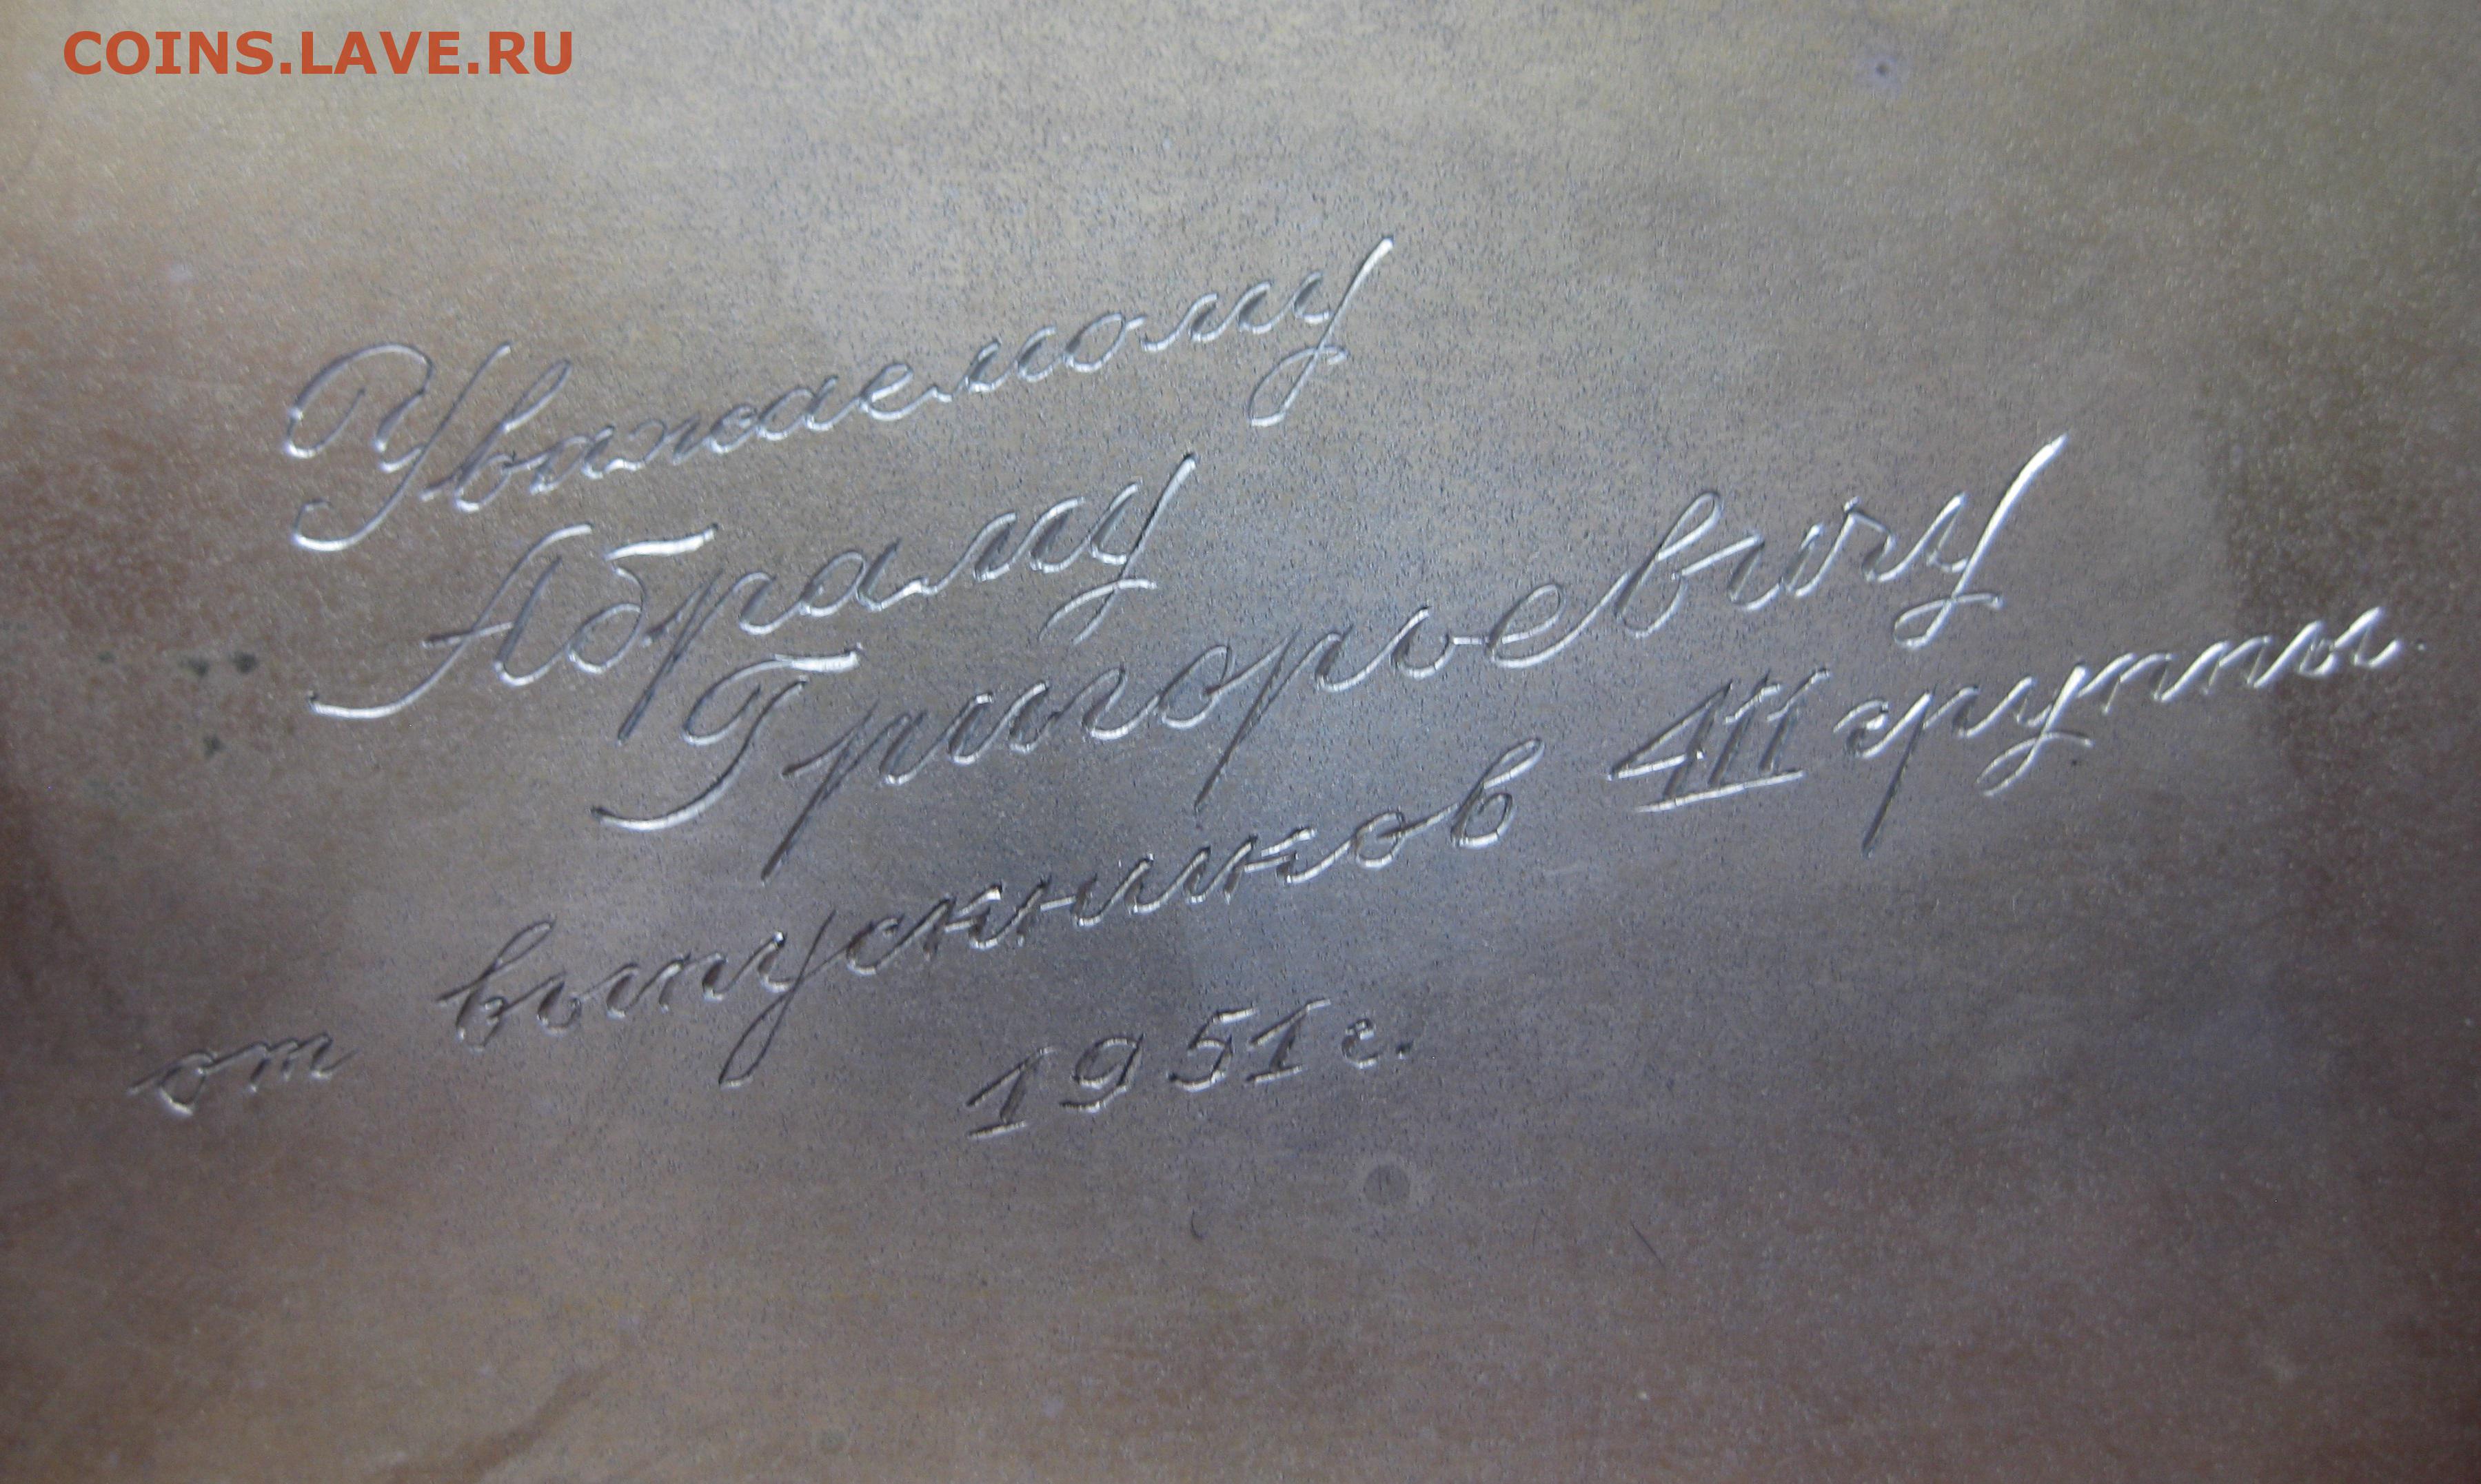 COINS.LAVE.RU
Уважаемому
Абраму
Григорьевичу
от выпускников 411 группы.
1951 г.